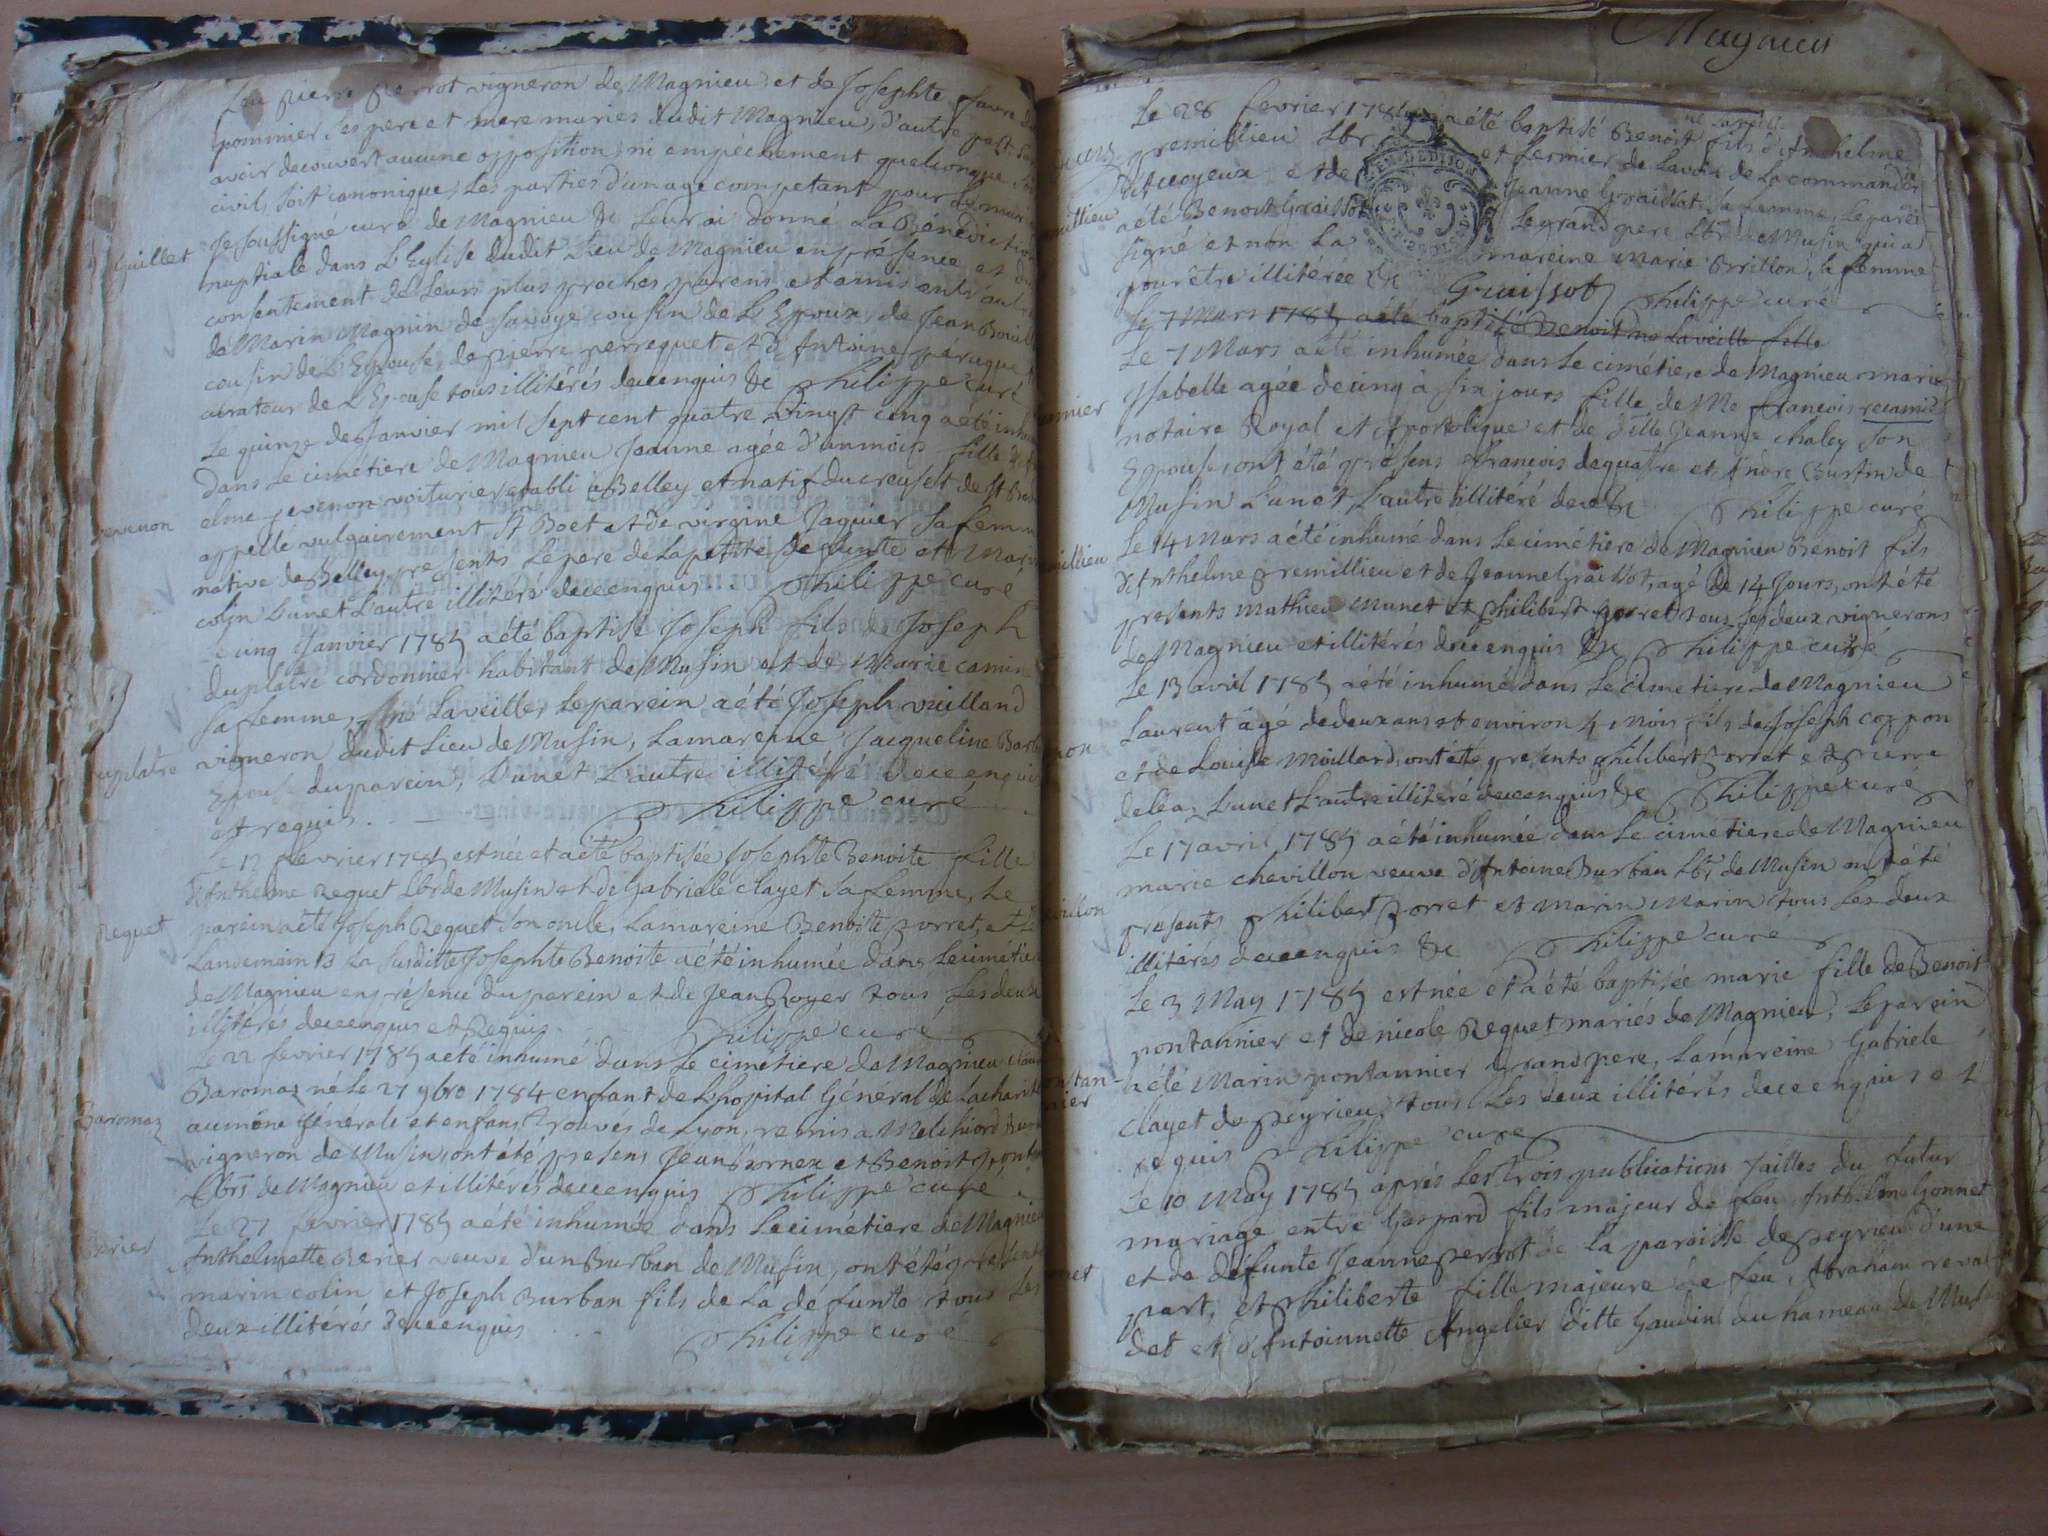 feu pierre perrot vigneron de Magnieu et de Josephte favre
pommier ses pere et mere mariés dudit Magnieu, d'autre part
avoir decouvert aucune opposition ni empéchement quelconque
civil, soit canonique, Les parties d'un age competant pour
Je soussigné curé de Magnieu &c Leur ai donné La Bénédiction
Guillet
nuptiale dans L'Eglise dudit Lieu de Magnieu en présence et du
consentement de Leurs plus proches parens et amis entr'autre
de Marin Magnin de Savoye cousin de L'Epoux, de Jean
cousin de L'Epouse, de pierre perreguet et d'Antoine
curateur de L'Epouse tous illitérés de ce enquis &c Philippe curé
Le quinze de Janvier mil sept cent quatre vingt cinq a été
dans Le cimétiere de Magnieu Jeanne agée d'un mois fille d'
elme jevenon voiturier etabli à Belley et natif du creuset de St
appellé vulgairement St Boet et de virgine Jaquier Sa femme
native de Belley, presents Le pere de La petite defunte et Marin
colin L'un et L'autre illitéré de ce enquis . . Philippe curé
Le cinq Janvier 1785 a été baptisé Joseph fils de Joseph
duplatre cordonnier habitant de Musin et de Marie
Sa femme, né La veille, Le parein a été Joseph vuilland
duplatre
vigneron dudit Lieu de Musin, La mareine Jacqueline
Epouse du parein, L'un et L'autre illitéré de ce enquis
et requis. Philippe curé
Le 12 fevrier 1785 est née et a été baptisée Josephte Benoite fille
d'Anthelme Reguet Lbr de Musin et de Gabriele clayet Sa femme, Le
Reguet
parein a été Joseph Reguet Son oncle, La mareine Benoite porret, et Le
Landemain 13 La Susditte Josephte Benoite a été inhumée dans Le cimétiere
de Magnieu en présence du parein et de Jean Royer tous Les deux
illitérés de ce enquis et Requis. Philippe curé
Le 22 fevrier 1785 a été inhumé dans Le cimétiere de Magnieu
Baromaz né Le 27 9bre 1784 enfant de L'hopital Général de La charité
Baromaz
aumône Générale et enfans Trouvés de Lyon, remis a Melchiord
vigneron de Musin, ont été presens Jean Bornex et Benoist
Lbrs de Magnieu et illitérés de ce enquis Philippe curé
Le 27 fevrier 1785 a été inhumée dans Le cimétiere de Magnieu
Perier
Anthelmette Perier veuve d'un Burban de Musin, ont été présents
marin colin et Joseph Burban fils de La défunte tous Les
deux illitérés de ce enquis . . . Philippe curé
Magnieu
Le 28 fevrier 1785 a été baptisé Benoit né La veille fils d'Anthelme
gremillieu Lbr et fermier de Lavoir de La commanderie
d'accoyeux et de Jeanne Graissot Sa femme, Le parein
a été Benoit Graissot Le grand pere Lbr de Musin qui a
signé et non La mareine Marie Brillon, Sa femme
pour être illitérée &c Graissot Philippe curé
Le 7 Mars 1785 a été baptisé Benoit né La veille fille
Le 7 Mars a été inhumée dans Le cimétiere de Magnieu marie
Isabelle agée de cinq à six jours fille de Me françois recamier
notaire Royal et Apostolique et de Dlle Jeanne chaley Son
Epouse, ont été présens françois dequatre et André Burfin de
Musin L'un et L'autre illitéré de ce &c Philippe curé
Le 14 Mars a été inhumé dans Le cimétiere de Magnieu Benoit fils
d'Anthelme gremillieu et de Jeanne Graissot, agé de 14 Jours, ont été
presents Mathieu Munet et Philibert porret tous Les deux vignerons
de Magnieu et illitérés de ce enquis &c Philippe curé
Le 13 avril 1785 a été inhumé dans Le cimetiere de Magnieu
Laurent âgé de deux ans et environ 4 Mois fils de Joseph coppon
et de Louise Moillard, ont été presents Philibert porret et pierre
deleaz L'un et L'autre illitéré de ce enquis &c Philippe curé
Le 17 avril 1785 a été inhumée dans Le cimetiere de Magnieu
marie chevillon veuve d'Antoine Burban Lbr de Musin ont été
présents Philibert porret et Marin Marin tous Les deux
illitérés de ce enquis &c Philippe curé
Le 3 May 1785 est née et a été baptisée marie fille de Benoit
pontannier et de nicole Reguet mariés de Magnieu, Le parein
a été Marin pontannier Grand pere, La mareine Gabriele
clayet de peyrieu, tous Les deux illitérés de ce enquis et
requis Philippe curé
Le 10 May 1785 après Les trois publications faites du futur
mariage entre Gaspard fils majeur de feu Anthelme Gonnet
et de défunte Jeanne perrot de La paroisse de peyrieu d'une
part, et Philiberte fille majeure de feu Abraham
det et d'Antoinnette Angelier ditte Gaudin du hameau de Musin